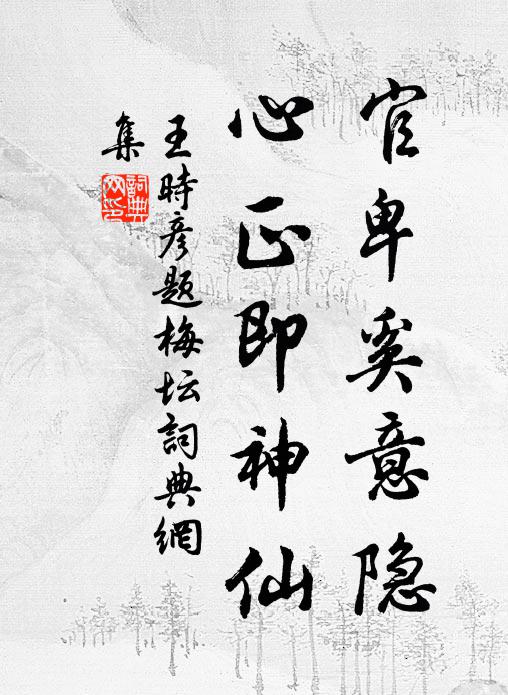 官卑奚意隐
心正即神仙
王時彦题梅坛詞典網
集
詞典網印